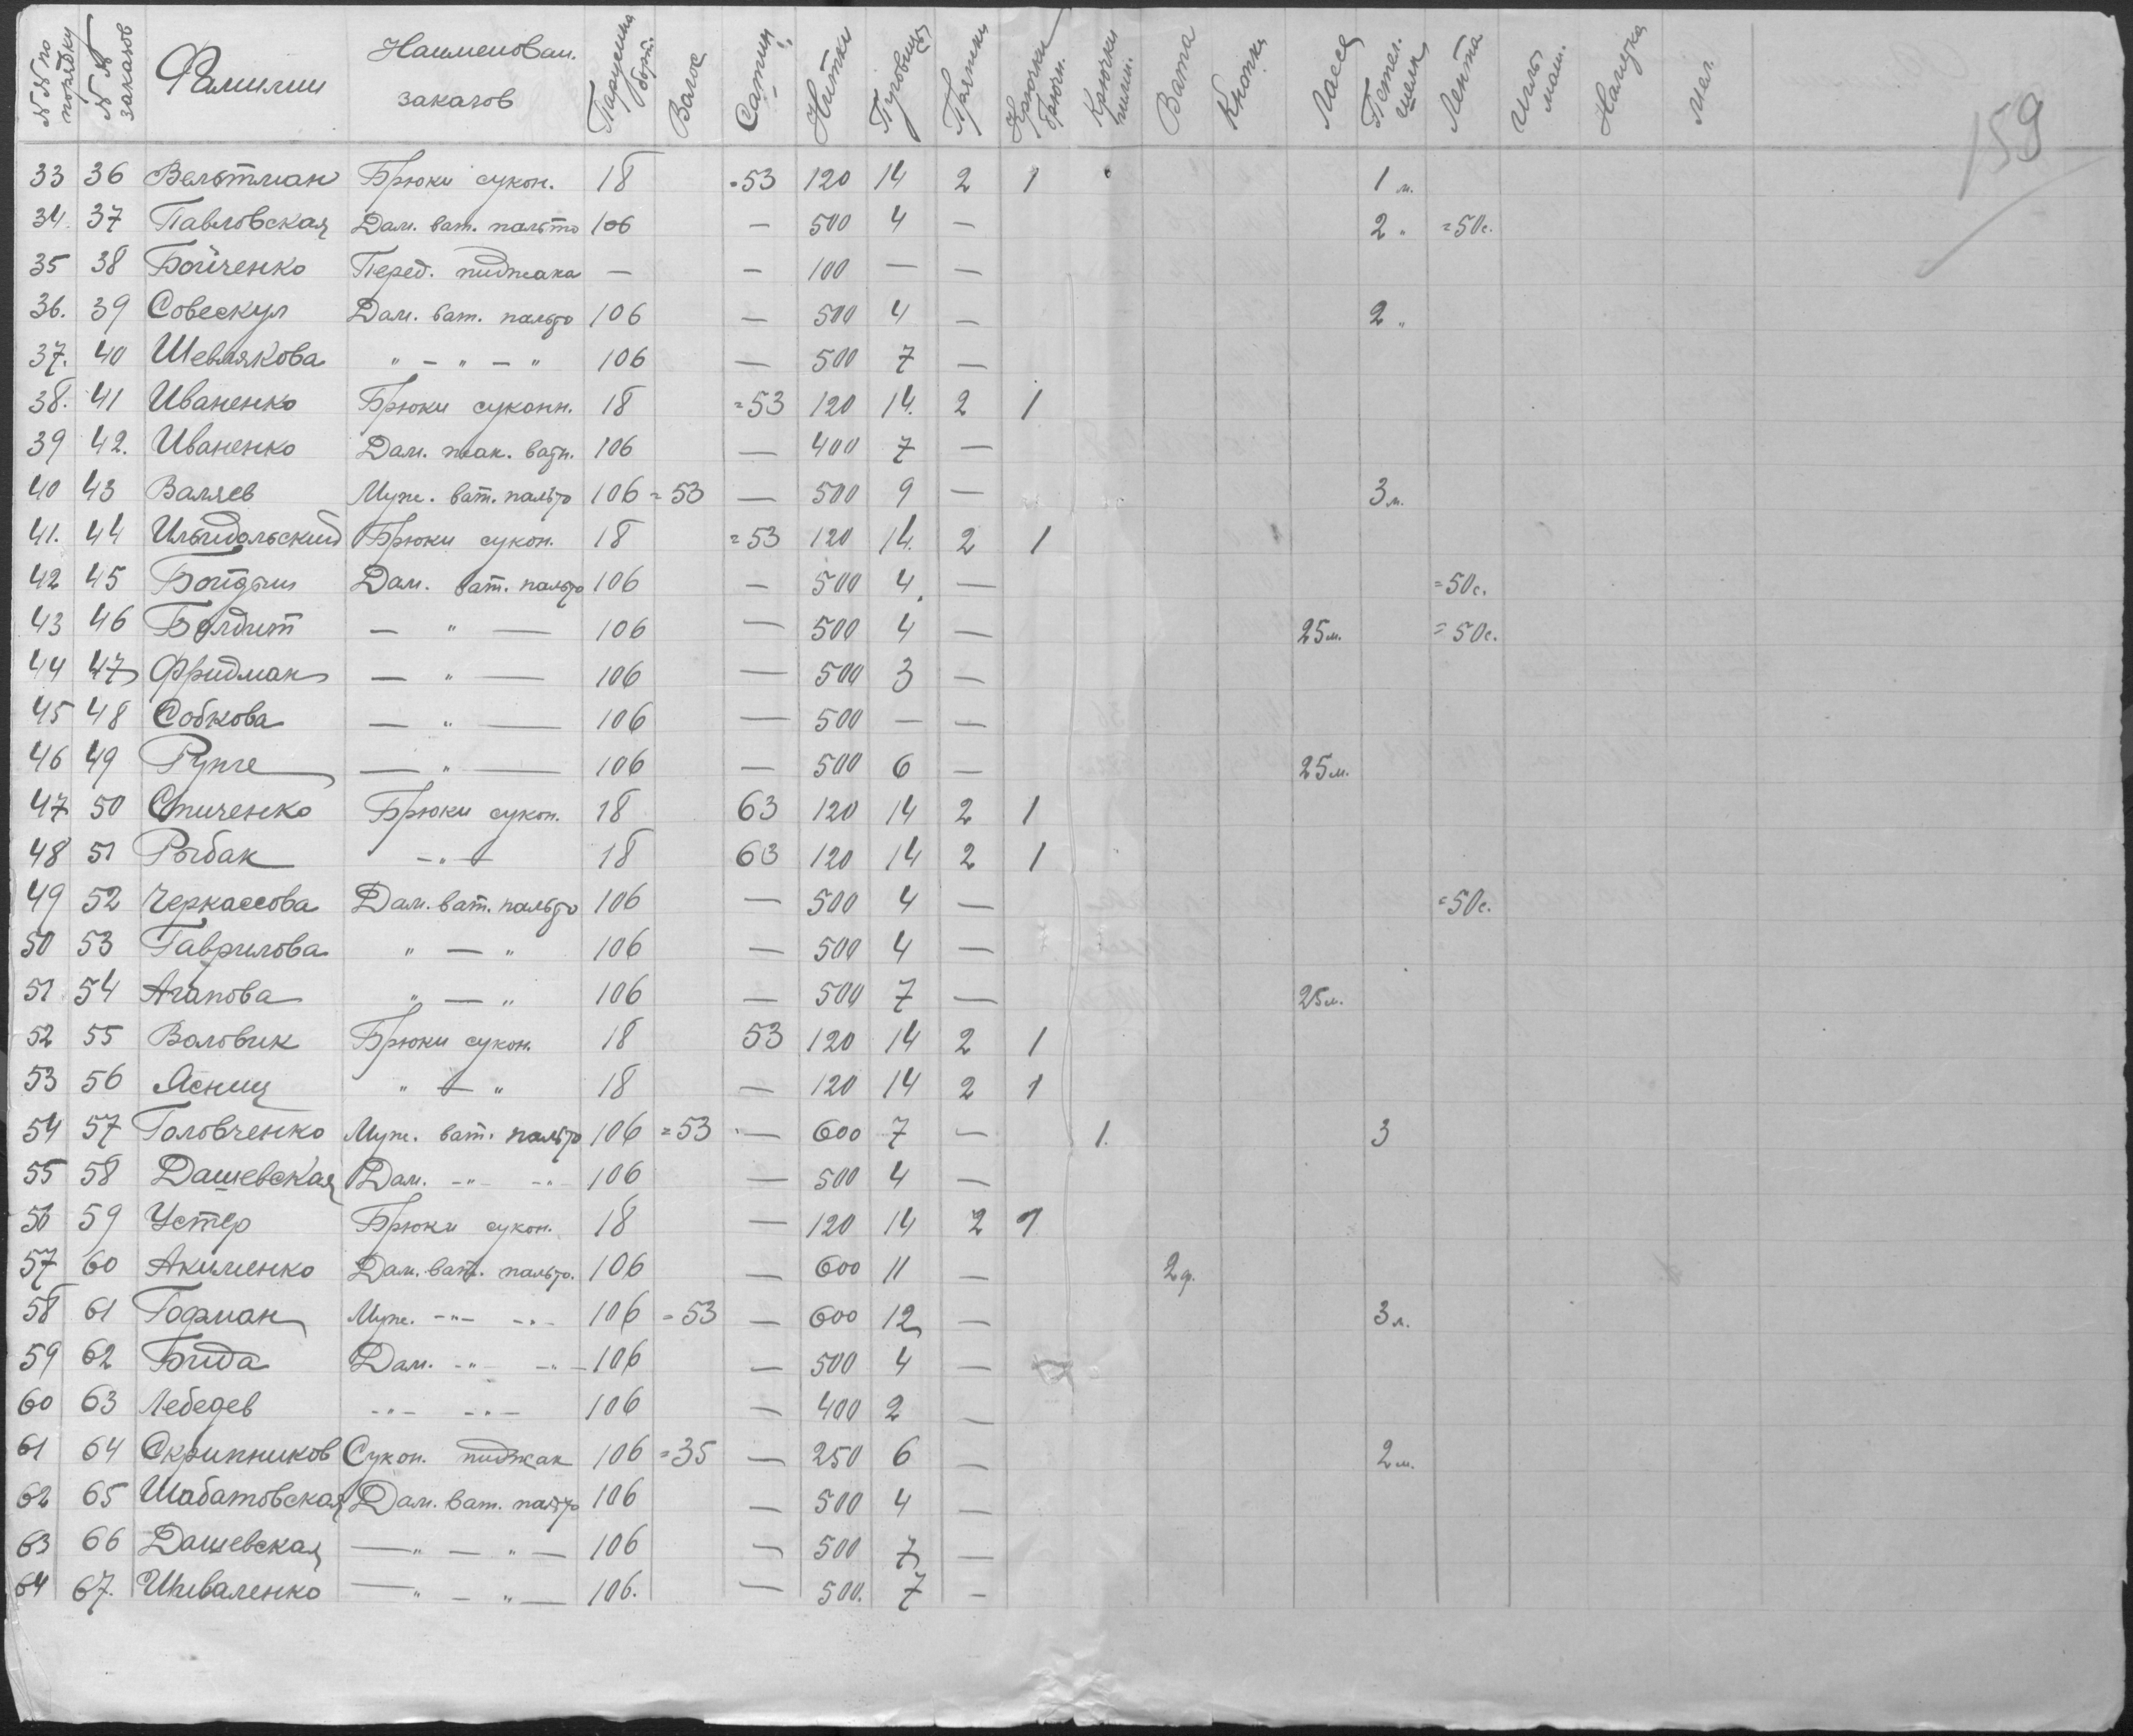 №№ по порядку №№ заказов Фамилии Наименован. заказов Парусина борт. Волос Сатин Нитки Пуговицы Пряжки Крючки брючн. Крючки Вата Кнопки Лассе Петел. шелк Лента Иголь маш. Мел
159
33 36 Вельтман Брюки сукон. 18 =53 120 14 2 1 1 м.
34. 37 Павловская Дам. ват. пальто 106 — 500 4 — 2 " =50с.
35 38 Бойченко Перед. пиджака — — 100 — —
36. 39 Совескул Дам. ват. пальто 106 — 500 4 — 2 "
37. 40 Шевлякова " — " — " 106 — 500 7 —
38. 41 Иваненко Брюки суконн. 18 =53 120 14. 2 1
39 42. Иваненко Дам. жак. ватн. 106 — 400 7 —
40 43 Валяев Муж. ват. пальто 106 =53 — 500 9 — 3 м.
41. 44 Брюки сукон. 18 =53 120 14. 2 1
42 45 Дам. ват. пальто 106 — 500 4. — =50с.
43 46 Болдит — " — 106 — 500 4 — 25м. =50с.
44 47 Фридман — " — 106 — 500 3 —
45 48 Собкова — " — 106 — 500 — —
46 49 Рунге — " — 106 — 500 6 — 25м.
47 50 Спиченко Брюки сукон. 18 63 120 14 2 1
48 51 Рыбак — " — 18 63 120 14 2 1
49 52 Черкассова Дам. ват. пальто 106 — 500 4 — =50с.
50 53 Гаврилова " — " 106 — 500 4 —
51 54 Агапова " — " 106 — 500 7 — 25м.
52 55 Воловик Брюки сукон. 18 53 120 14 2 1
53 56 Яснищ " — " 18 — 120 14 2 1
54 57 Головченко Муж. ват. пальто 106 =53 — 600 7 — 1. 3
55 58 Дашевская Дам. -"- -"- 106 — 500 4 —
56 59 Устер Брюки сукон. 18 — 120 14 2 1
57 60 Акименко Дам. ват. пальто. 106 — 600 11 — 2ф.
58 61 Гофман Муж. -"- -"- 106 =53 — 600 12 — 3 м.
59 62 Дам. -"- -"- 106 — 500 4 —
60 63 Лебедев -"- -"- 106 — 400 2 —
61 64 Скрипников Сукон. пиджак 106 =35 — 250 6 — 2 м.
62 65 Шабатовская Дам. ват. пальто 106 — 500 4 —
63 66 Дашевская — " — " — 106 — 500 7 —
64 67. Шиваленко — " — " — 106. — 500. 7 —